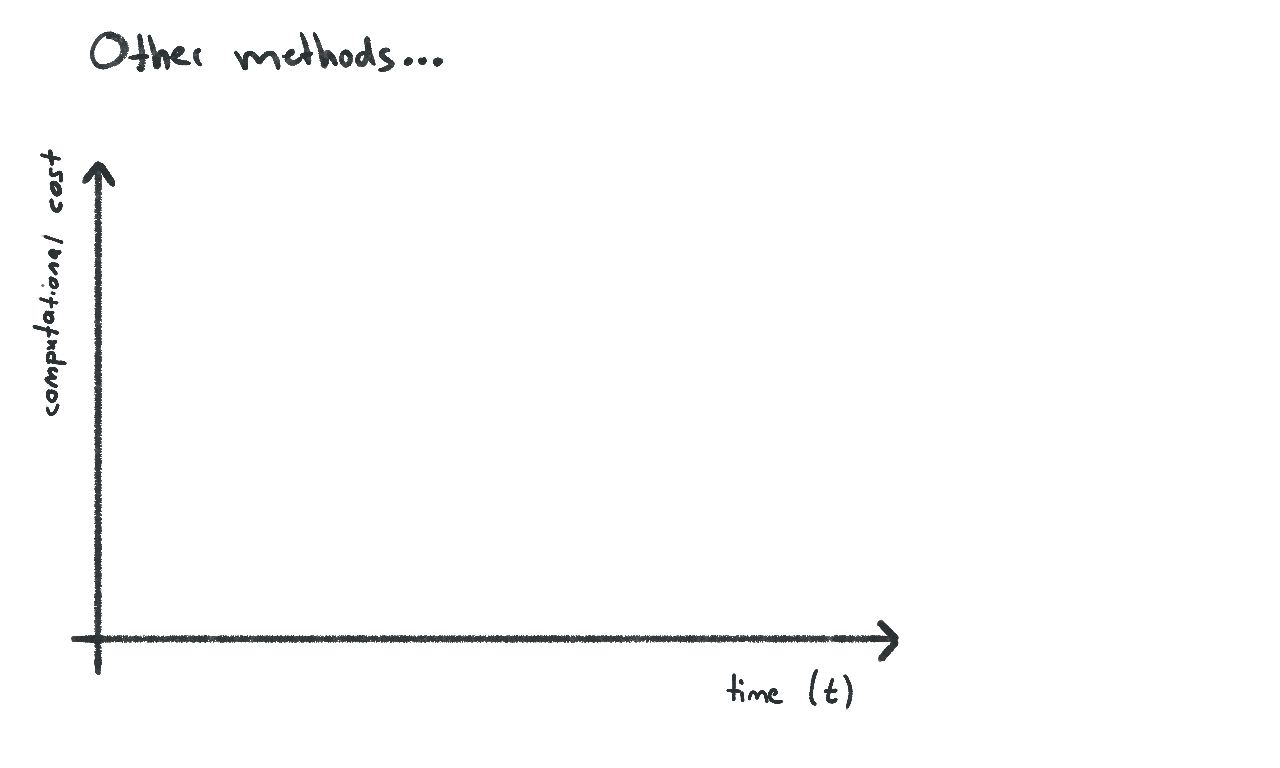 Other methods...
computational cost
time (t)